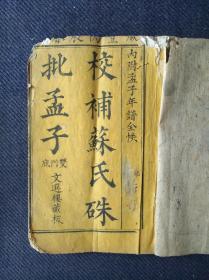 內附孟子年譜全帙
校補蘇氏硃
批孟子
雙門底
文選樓藏板